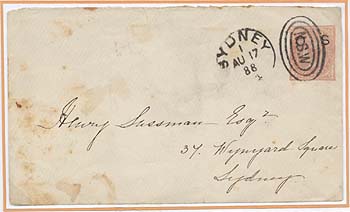 SYDNEY
1
AU 17
88
2
NSW
S
Henry Sussman Esqr
37. Wynyard Square
Sydney.